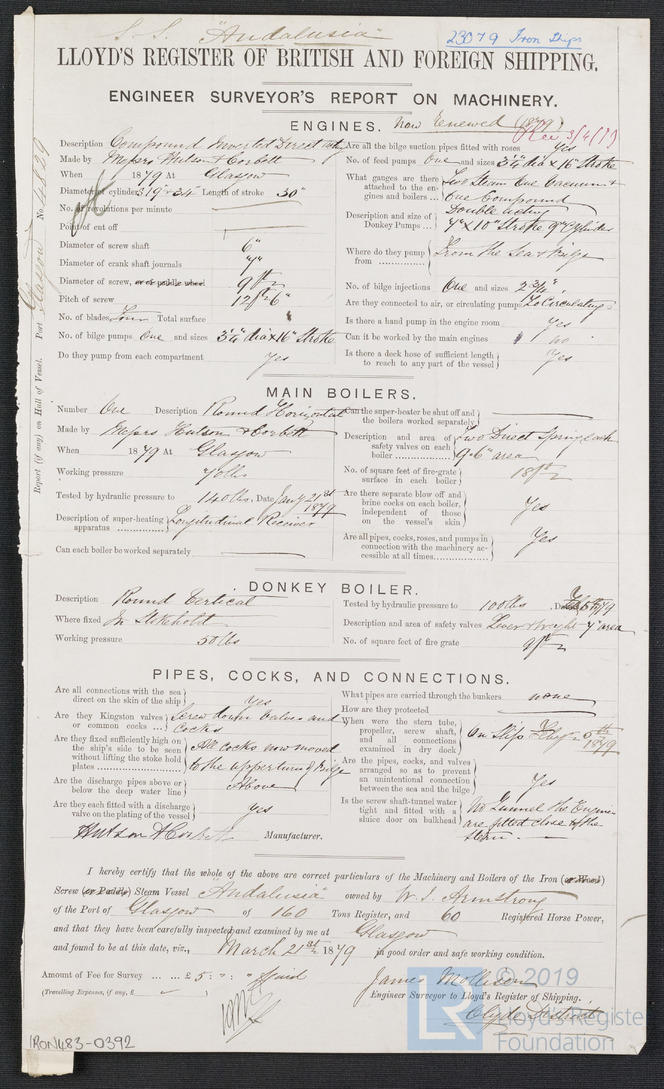 S.S. "Andalusia"
23079 Iron Ships
LLOYD'S REGISTER OF BRITISH AND FOREIGN SHIPPING.
ENGINEER SURVEYOR'S REPORT ON MACHINERY.
Report (if any) on Hull of Vessel. Port Glasgow No. 4829
ENGINES. Now Renewed (1879)
Rec 3/4/79
Description Compound Inverted Direct Acting
Made by Messrs Hutson & Corbett
When 1879 At Glasgow
Diameter of cylinders 19" & 34" Length of stroke 30"
No. of revolutions per minute
Point of cut off
Diameter of screw shaft 6"
Diameter of crank shaft journals 7"
Diameter of screw, or of paddle wheel 9 ft
Pitch of screw 12 ft 6"
No. of blades Four Total surface
No. of bilge pumps One and sizes 3¼" dia x 16" Stroke
Do they pump from each compartment Yes
Are all the bilge suction pipes fitted with roses Yes
No. of feed pumps One and sizes 3¼" dia x 16" Stroke
What gauges are there attached to the engines and boilers ... Two Steam One Vacuum & One Compound
Description and size of Donkey Pumps ... Double acting 4" x 10" Stroke 9" Cylinder
Where do they pump from From the Sea & Bilge
No. of bilge injections One and sizes 2¾"
Are they connected to air, or circulating pumps To Circulating
Is there a hand pump in the engine room Yes
Can it be worked by the main engines no
Is there a deck hose of sufficient length to reach to any part of the vessel Yes
MAIN BOILERS.
Number One Description Round Horizontal
Made by Messrs Hutson & Corbett
When 1879 At Glasgow
Working pressure 70 lbs
Tested by hydraulic pressure to 140 lbs, Date Jany 21st 1879
Description of super-heating apparatus Longitudinal Receiver
Can each boiler be worked separately
Can the super-heater be shut off and the boilers worked separately
Description and area of safety valves on each boiler Two Direct Spring each 9.6" area
No. of square feet of fire-grate surface in each boiler 18 ft
Are there separate blow off and brine cocks on each boiler, independent of those on the vessel's skin Yes
Are all pipes, cocks, roses, and pumps in connection with the machinery accessible at all times Yes
DONKEY BOILER.
Description Round Vertical
Where fixed In Stokehold
Working pressure 50 lbs
Tested by hydraulic pressure to 100 lbs, Date
Description and area of safety valves Lever & Weight 7" area
No. of square feet of fire grate 9 ft
PIPES, COCKS, AND CONNECTIONS.
Are all connections with the sea direct on the skin of the ship Yes
Are they Kingston valves or common cocks ... Screw down Valves and Cocks
Are they fixed sufficiently high on the ship's side to be seen without lifting the stoke hold plates All Cocks now moved to the upper turn of Bilge
Are the discharge pipes above or below the deep water line Above
Are they each fitted with a discharge valve on the plating of the vessel Yes
Hutson & Corbett Manufacturer.
What pipes are carried through the bunkers none
How are they protected
When were the stern tube, propeller, screw shaft, and all connections examined in dry dock On Slip 1879
Are the pipes, cocks, and valves arranged so as to prevent an unintentional connection between the sea and the bilge Yes
Is the screw shaft-tunnel water tight and fitted with a sluice door on bulkhead No Tunnel the Engines are fitted close to the Stern
I hereby certify that the whole of the above are correct particulars of the Machinery and Boilers of the Iron (or Wood)
Screw (or Paddle) Steam Vessel "Andalusia" owned by W. S. Armstrong
of the Port of Glasgow of 160 Tons Register, and 60 Registered Horse Power,
and that they have been carefully inspected and examined by me at Glasgow
and found to be at this date, viz., March 21st 1879 in good order and safe working condition.
Amount of Fee for Survey ... ... £ 5 : " : " paid
(Travelling Expenses, if any, £ )
James Mollison
Engineer Surveyor to Lloyd's Register of Shipping.
Clyde District
IRON483-0392
LR
© 2019
Lloyd's Register
Foundation